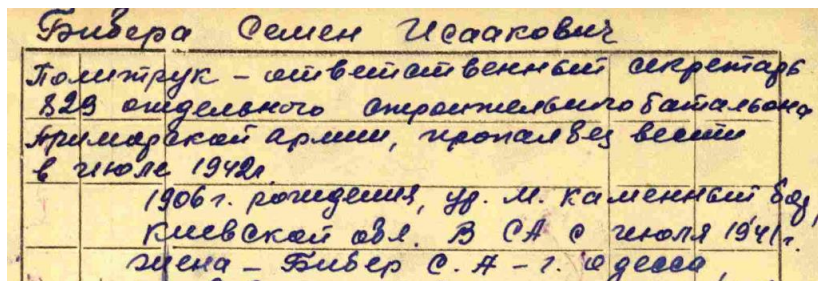 Бибера Семен Исаакович
Политрук – ответственный секретарь
829 отдельного строительного батальона
Приморской армии, пропал без вести
в июле 1942г
1906г. рождения, ур. м. Каменный бод,
Киевской обл. В СА с июля 1941г.
жена – Бибер С. А – г. Одесса,